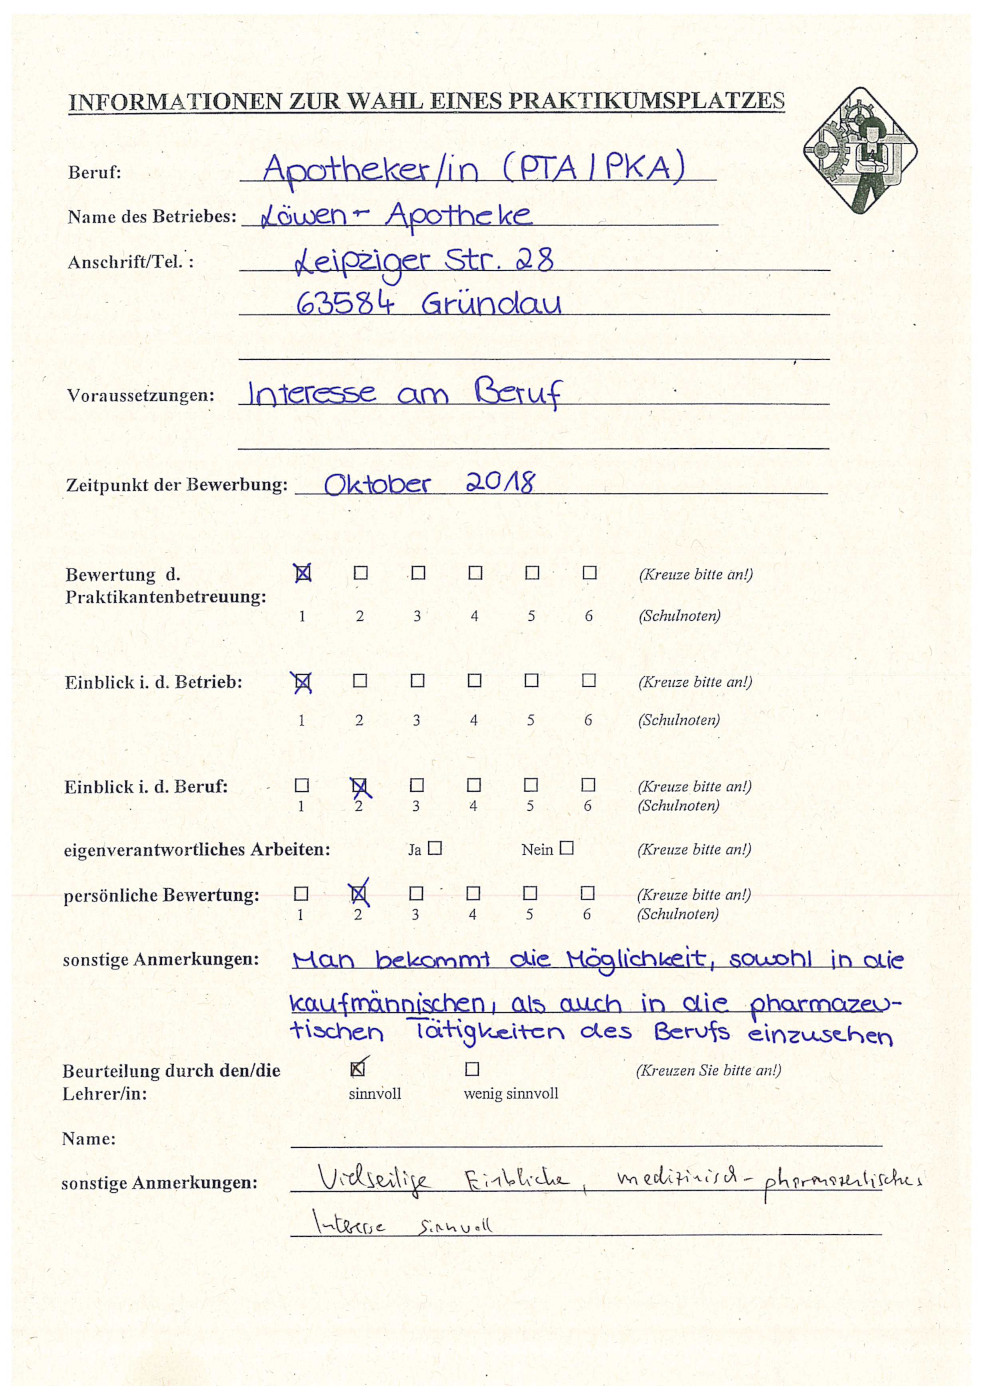 INFORMATIONEN ZUR WAHL EINES PRAKTIKUMSPLATZES
Beruf: Apotheker/in (PTA / PKA)
Name des Betriebes: Löwen - Apotheke
Anschrift/Tel. : Leipziger Str. 28
63584 Gründau
Voraussetzungen: Interesse am Beruf
Zeitpunkt der Bewerbung: Oktober 2018
Bewertung d. (Kreuze bitte an!)
Praktikantenbetreuung:
1 2 3 4 5 6 (Schulnoten)
Einblick i. d. Betrieb: (Kreuze bitte an!)
1 2 3 4 5 6 (Schulnoten)
Einblick i. d. Beruf: (Kreuze bitte an!)
1 2 3 4 5 6 (Schulnoten)
eigenverantwortliches Arbeiten: Ja Nein (Kreuze bitte an!)
persönliche Bewertung: (Kreuze bitte an!)
1 2 3 4 5 6 (Schulnoten)
sonstige Anmerkungen: Man bekommt die Möglichkeit, sowohl in die
kaufmännischen, als auch in die pharmazeu-
tischen Tätigkeiten des Berufs einzusehen
Beurteilung durch den/die (Kreuzen Sie bitte an!)
Lehrer/in: sinnvoll wenig sinnvoll
Name:
sonstige Anmerkungen: Vielseitige Einblicke, medizinisch-pharmazeutisches
Interesse sinnvoll